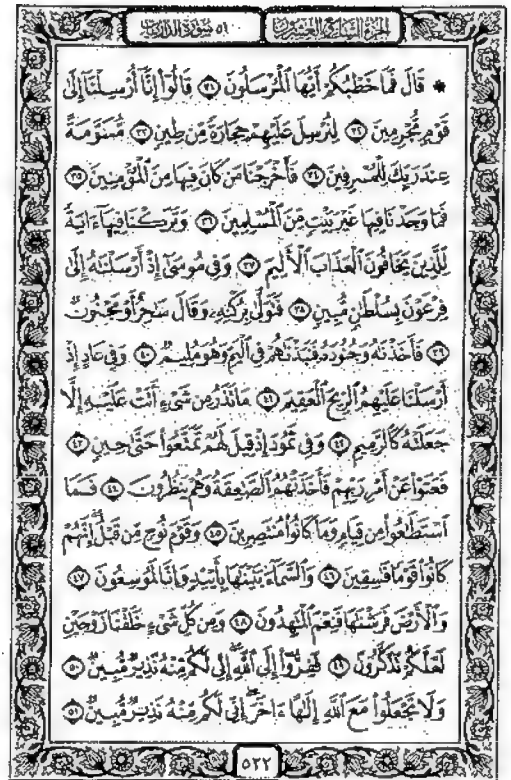 الجزء السابع والعشرون
٥١ سورة الذاريات
* قَالَ فَمَا خَطْبُكُمْ أَيُّهَا الْمُرْسَلُونَ ٣١ قَالُوا إِنَّا أُرْسِلْنَا إِلَىٰ
قَوْمٍ مُّجْرِمِينَ ٣٢ لِنُرْسِلَ عَلَيْهِمْ حِجَارَةً مِّن طِينٍ ٣٣ مُّسَوَّمَةً
عِندَ رَبِّكَ لِلْمُسْرِفِينَ ٣٤ فَأَخْرَجْنَا مَن كَانَ فِيهَا مِنَ الْمُؤْمِنِينَ ٣٥
فَمَا وَجَدْنَا فِيهَا غَيْرَ بَيْتٍ مِّنَ الْمُسْلِمِينَ ٣٦ وَتَرَكْنَا فِيهَا ءَايَةً
لِّلَّذِينَ يَخَافُونَ الْعَذَابَ الْأَلِيمَ ٣٧ وَفِي مُوسَىٰ إِذْ أَرْسَلْنَٰهُ إِلَىٰ
فِرْعَوْنَ بِسُلْطَٰنٍ مُّبِينٍ ٣٨ فَتَوَلَّىٰ بِرُكْنِهِۦ وَقَالَ سَٰحِرٌ أَوْ مَجْنُونٌ
٣٩ فَأَخَذْنَٰهُ وَجُنُودَهُۥ فَنَبَذْنَٰهُمْ فِي الْيَمِّ وَهُوَ مُلِيمٌ ٤٠ وَفِي عَادٍ إِذْ
أَرْسَلْنَا عَلَيْهِمُ الرِّيحَ الْعَقِيمَ ٤١ مَا تَذَرُ مِن شَيْءٍ أَتَتْ عَلَيْهِ إِلَّا
جَعَلَتْهُ كَالرَّمِيمِ ٤٢ وَفِي ثَمُودَ إِذْ قِيلَ لَهُمْ تَمَتَّعُوا حَتَّىٰ حِينٍ ٤٣
فَعَتَوْا عَنْ أَمْرِ رَبِّهِمْ فَأَخَذَتْهُمُ الصَّٰعِقَةُ وَهُمْ يَنظُرُونَ ٤٤ فَمَا
اسْتَطَٰعُوا مِن قِيَامٍ وَمَا كَانُوا مُنتَصِرِينَ ٤٥ وَقَوْمَ نُوحٍ مِّن قَبْلُ إِنَّهُمْ
كَانُوا قَوْمًا فَٰسِقِينَ ٤٦ وَالسَّمَاءَ بَنَيْنَٰهَا بِأَيْيدٍ وَإِنَّا لَمُوسِعُونَ ٤٧
وَالْأَرْضَ فَرَشْنَٰهَا فَنِعْمَ الْمَٰهِدُونَ ٤٨ وَمِن كُلِّ شَيْءٍ خَلَقْنَا زَوْجَيْنِ
لَعَلَّكُمْ تَذَكَّرُونَ ٤٩ فَفِرُّوا إِلَى اللَّهِ إِنِّي لَكُم مِّنْهُ نَذِيرٌ مُّبِينٌ ٥٠
وَلَا تَجْعَلُوا مَعَ اللَّهِ إِلَٰهًا ءَاخَرَ إِنِّي لَكُم مِّنْهُ نَذِيرٌ مُّبِينٌ ٥١
٥٢٢